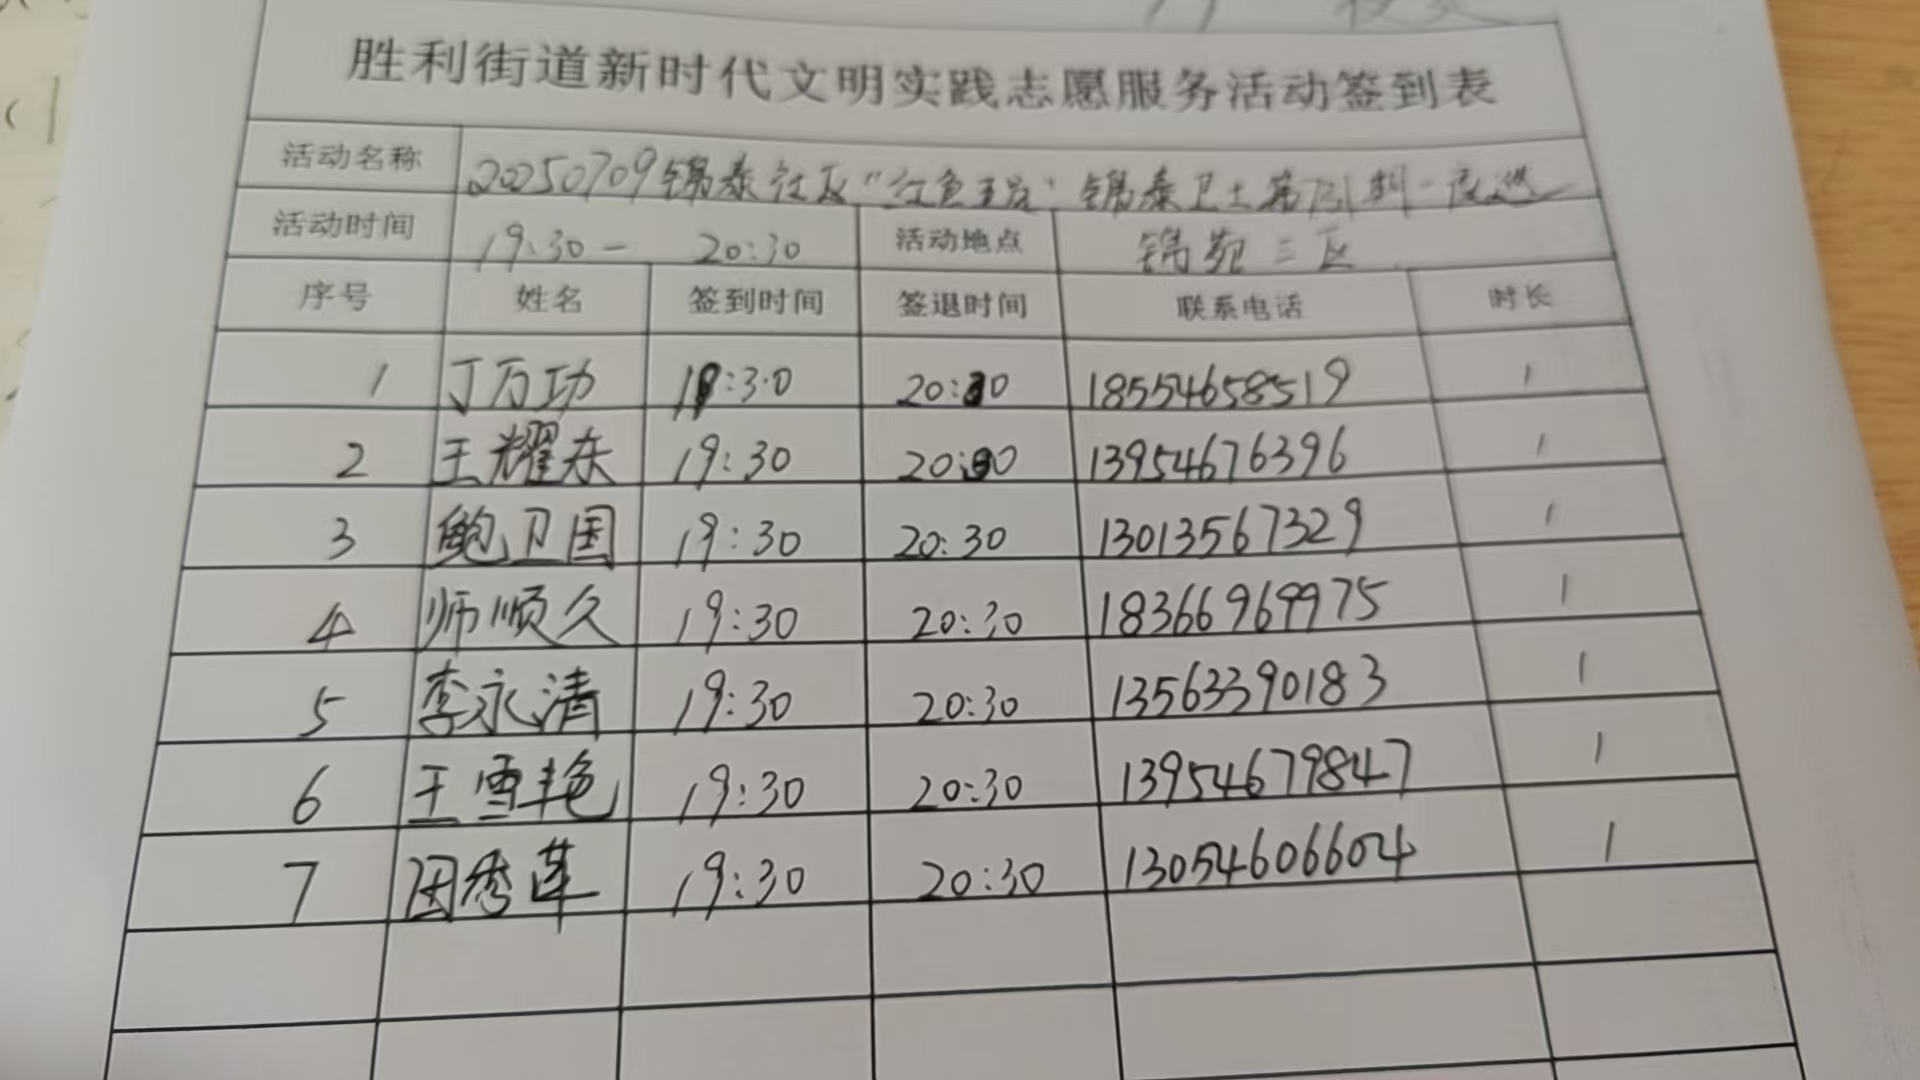 胜利街道新时代文明实践志愿服务活动签到表
活动名称 20250709锦泰社区“红色 锦泰卫士第131期-夜巡
活动时间 19:30- 20:30 活动地点 锦苑三区
序号 姓名 签到时间 签退时间 联系电话 时长
1 丁万功 19:30 20:30 18554658519 1
2 王耀东 19:30 20:30 13954676396 1
3 鲍卫国 19:30 20:30 13013567329 1
4 师顺久 19:30 20:30 18366969975 1
5 李永清 19:30 20:30 13563390183 1
6 王雪艳 19:30 20:30 13954679847 1
7 田秀莲 19:30 20:30 13054606604 1